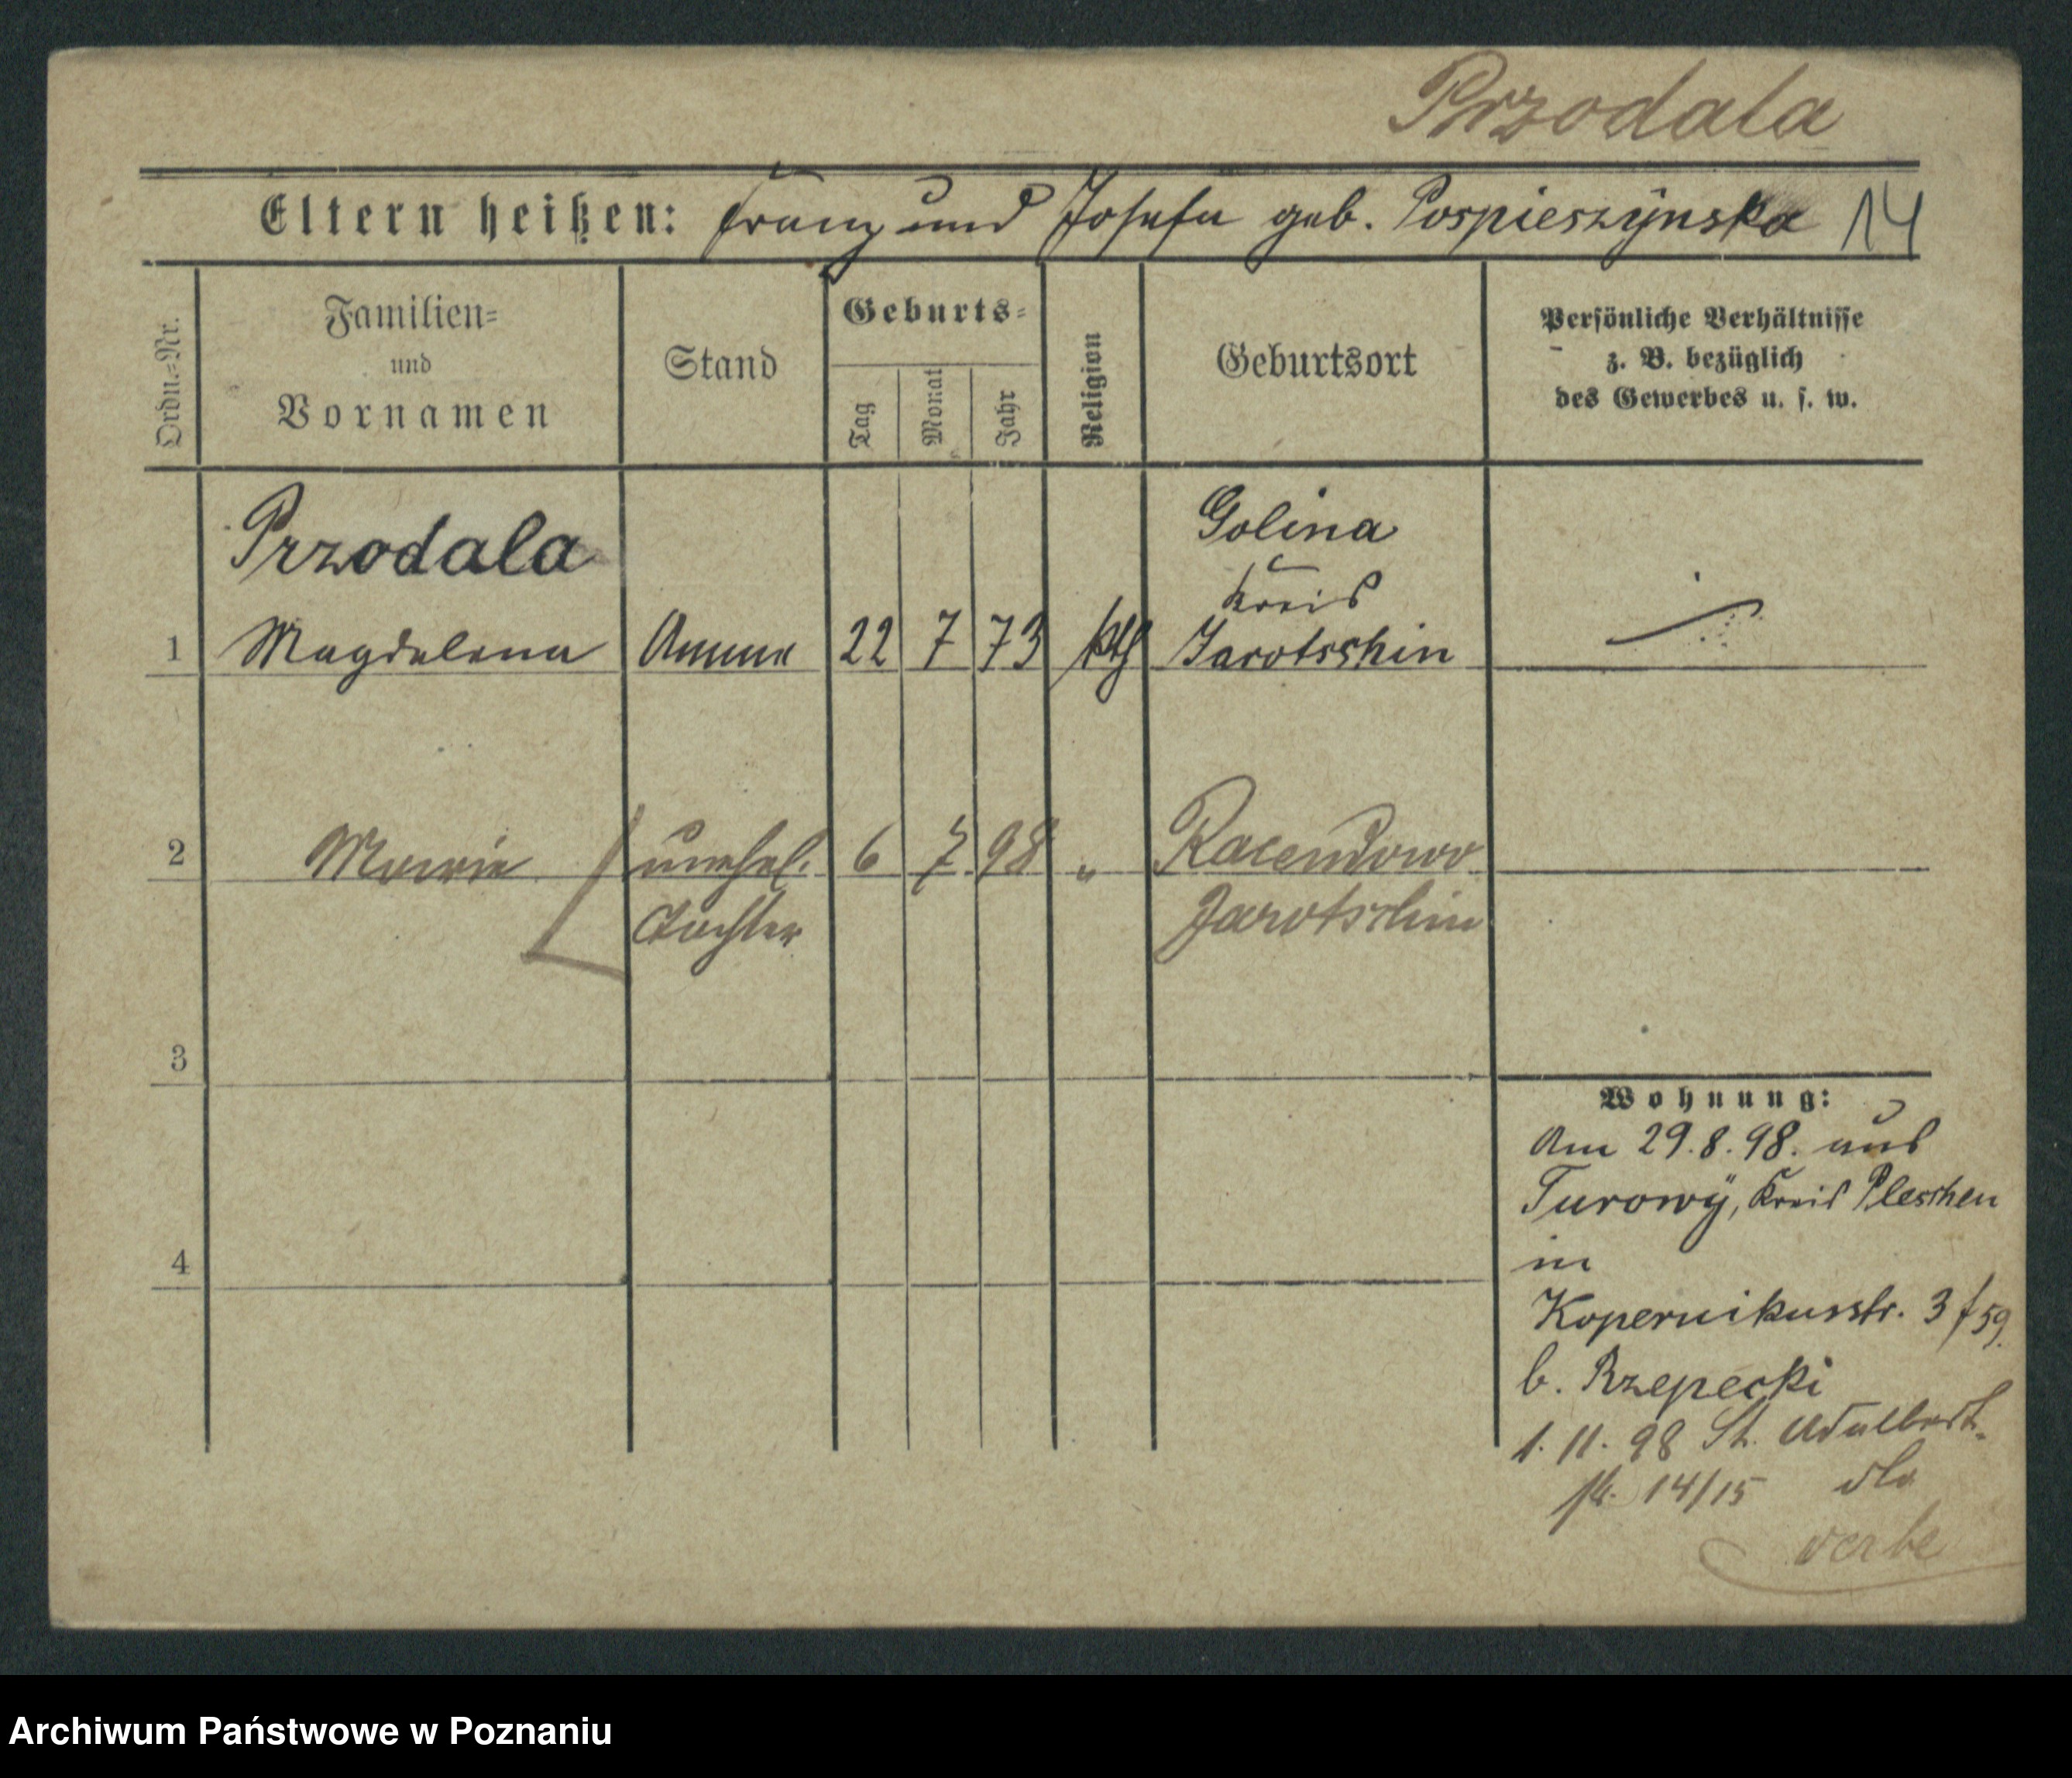 Przodala
Eltern heißen: Franz und Josefa geb. Pospieszÿnska 14
Ordn.-Nr.
Familien=
und
Vornamen
Stand
Geburts=
Tag
Monat
Jahr
Religion
Geburtsort
Persönliche Verhältnisse
z. B. bezüglich
des Gewerbes u. s. w.
Przodala Golina
Kreis
1 Magdalena Amme 22 7 73 kth Jarotschin
2 Marie unehel. 6 7. 98 " Racendowo
Tochter Jarotschin
3
Wohnung:
Am 29.8.98. aus
Turowÿ, Kreis Pleschen
4 in
Kopernikusstr. 3 f 59.
b. Rzepecki
1. 11. 98 St. Adalbert-
str. 14/15 dto
Archiwum Państwowe w Poznaniu